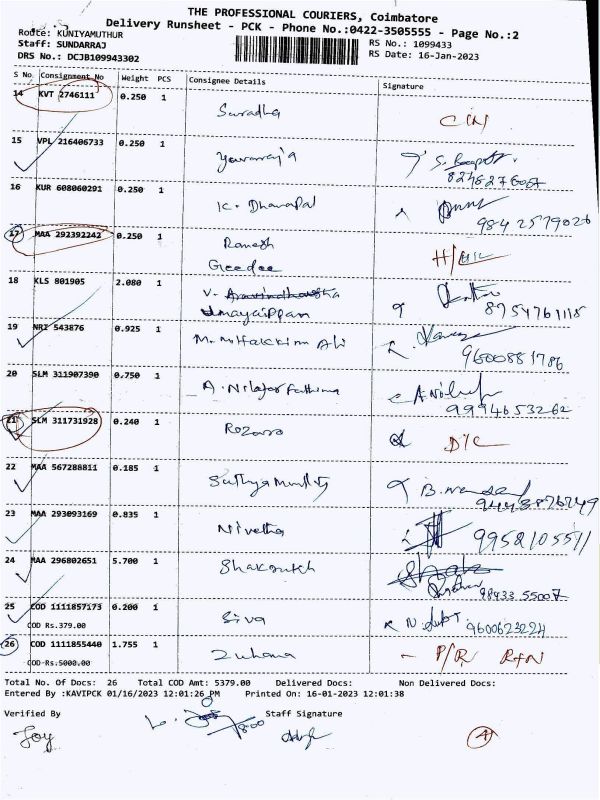 THE PROFESSIONAL COURIERS, Coimbatore
Delivery Runsheet - PCK - Phone No.:0422-3505555 - Page No.:2
Route: KUNIYAMUTHUR
Staff: SUNDARRAJ
RS No.: 1099433
DRS No.: DCJB109943302
RS Date: 16-Jan-2023
S No Consignment No Weight PCS Consignee Details Signature
14 KVT 2746111 0.250 1 Suradha
15 VPL 216406733 0.250 1 Yuvaraja
16 KUR 608060291 0.250 1 K. Dhanapal 9842579026
17 MAA 292392242 0.250 1 Ramesh
Geedee
18 KLS 801905 2.080 1 V. 8754761118
Umayaippan
19 NRI 543876 0.925 1 Ali 9600881786
20 SLM 311907390 0.750 1 A. Nilofar Fathima 9994653262
21 SLM 311731928 0.240 1 Rozario D/C
22 MAA 567288811 0.185 1 Sathya
23 MAA 293093169 0.835 1 Nivetha 9952105511
24 MAA 296802651 5.700 1 98433 55007
25 COD 1111857173 0.200 1 Siva 9600623224
COD Rs.379.00
26 COD 1111855440 1.755 1 Zuhana - P/R RTN
COD Rs.5000.00
Total No. Of Docs: 26 Total COD Amt: 5379.00 Delivered Docs: Non Delivered Docs:
Entered By :KAVIPCK 01/16/2023 12:01:26 PM Printed On: 16-01-2023 12:01:38
Verified By Staff Signature
Joy
4